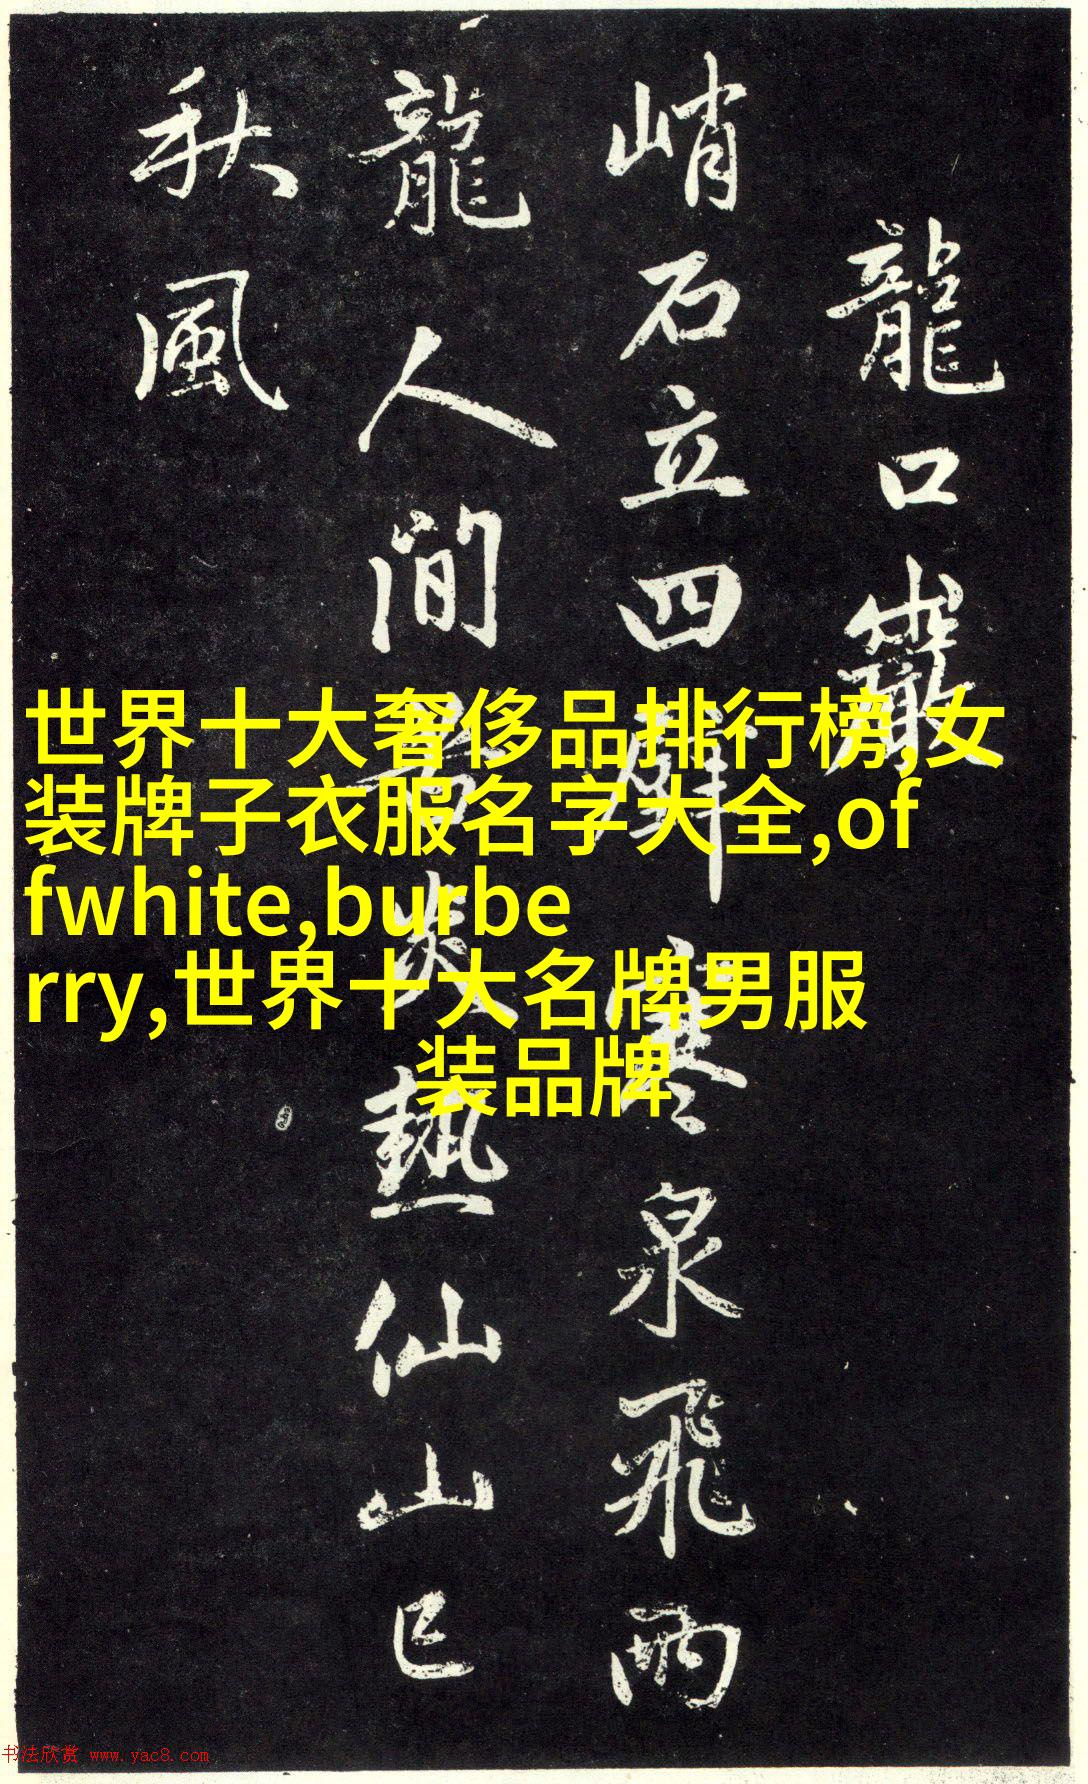 龍口巖
峭石立四壁寒泉飛兩
龍人間苦炎熱仙山已
秋風
世界十大奢侈品排行榜,女
装牌子衣服名字大全,of
fwhite,burbe
rry,世界十大名牌男服
装品牌
书法欣赏 www.yac8.com